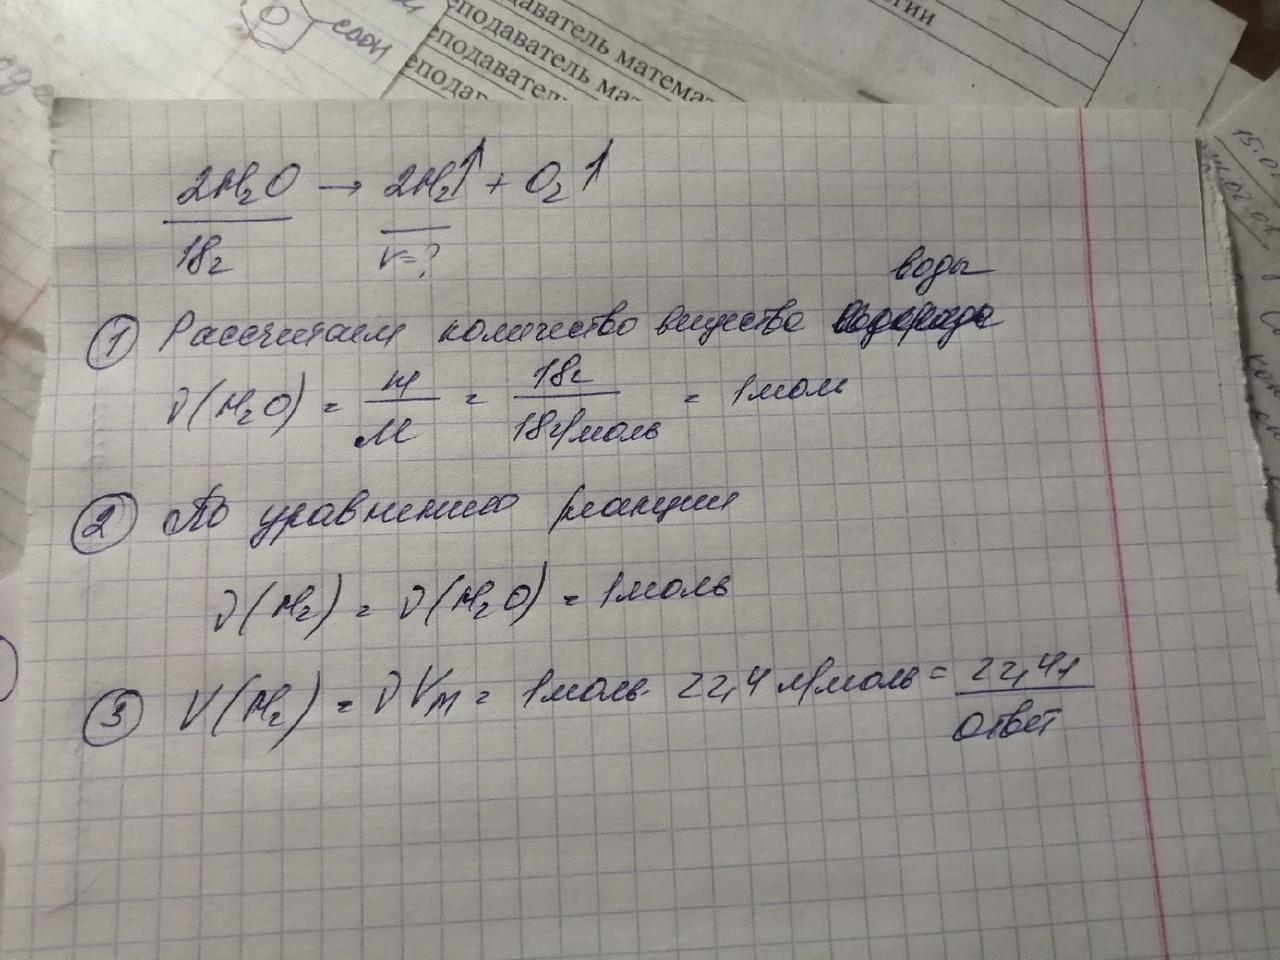 даватель математ
еподаватель математ
еподаватель мат
еподават
гии
соон
15.0
2H₂O → 2H₂↑ + O₂↑
18г V=?
воды
① Рассчитаем количество вещества водорода
ν(H₂O) = m/M = 18г/18г/моль = 1моль
② По уравнению реакции
ν(H₂) = ν(H₂O) = 1моль
③ V(H₂) = νVm = 1моль · 22,4 л/моль = 22,4л
ответ